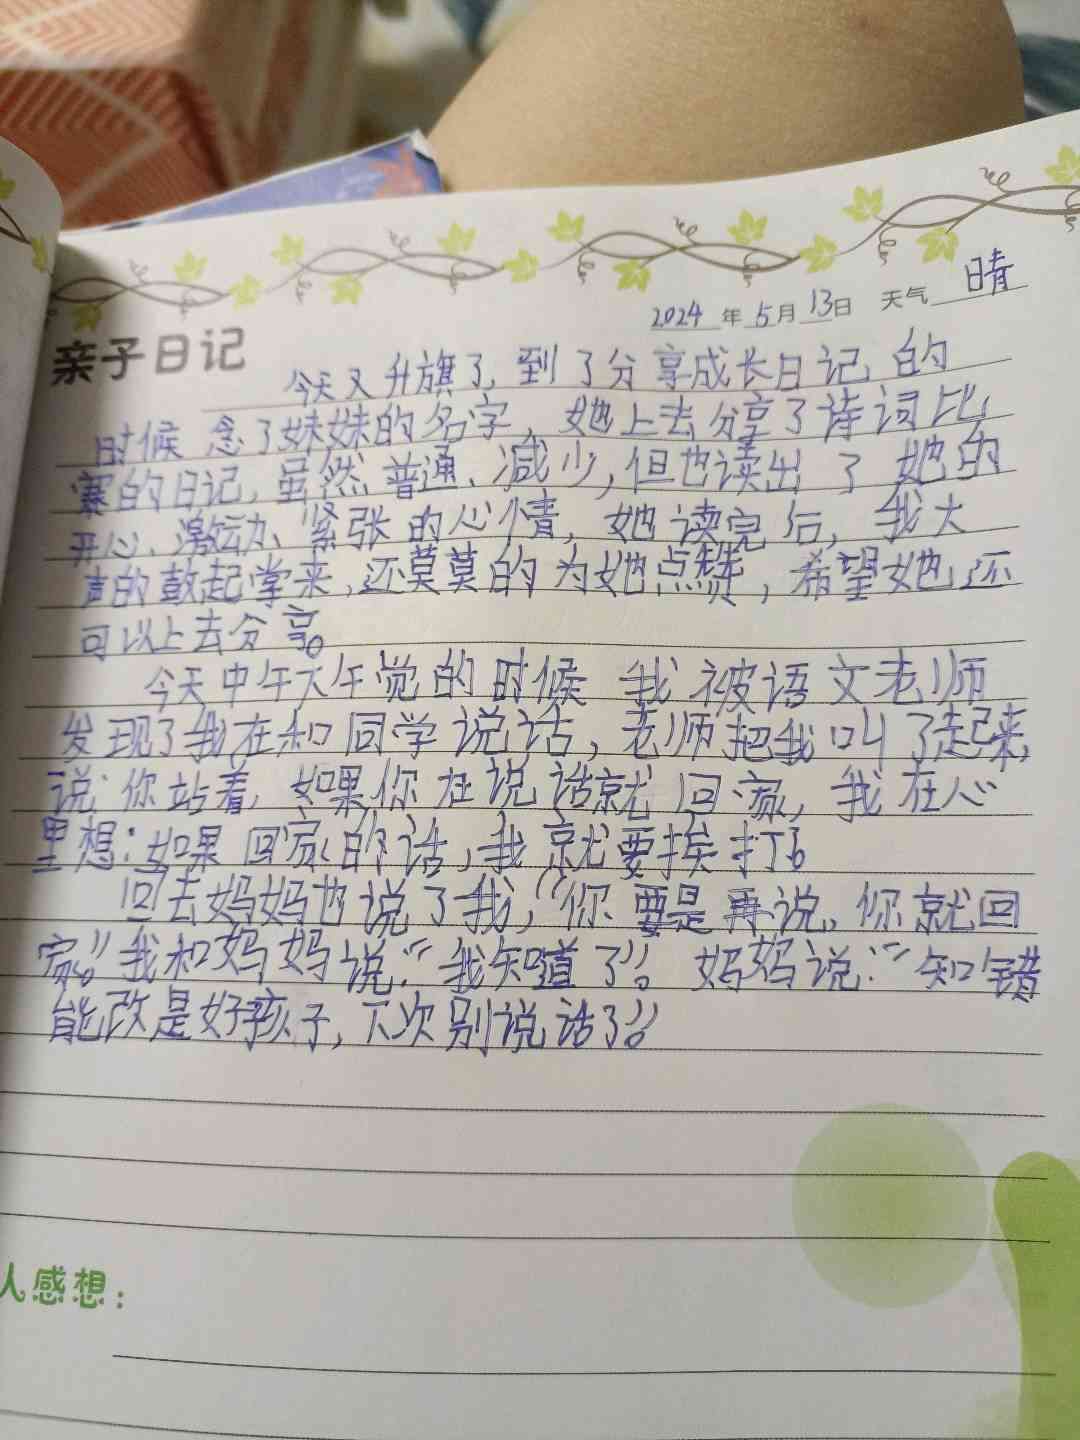 2024年5月13日 天气 晴
亲子日记
今天又升旗了，到了分享成长日记，的
时候 念了妹妹的名字，她上去分享了诗词比
寨的日记，虽然普通、减少，但也读出了她的
开心、激动、紧张的心情，她读完后，我大
声的鼓起掌来，还莫莫的为她点赞，希望她还
可以上去分享。
今天中午下午觉的时候 我被语文老师
发现了我在和同学说话，老师把我叫了起来，
说：你站着，如果你在说话就回家，我在心
里想：如果回家的话，我就要挨打。
回去妈妈也说了我，“你要是再说，你就回
家。”我和妈妈说：“我知道了”。妈妈说：“知错
能改是好孩子，下次别说话了”。
人感想：